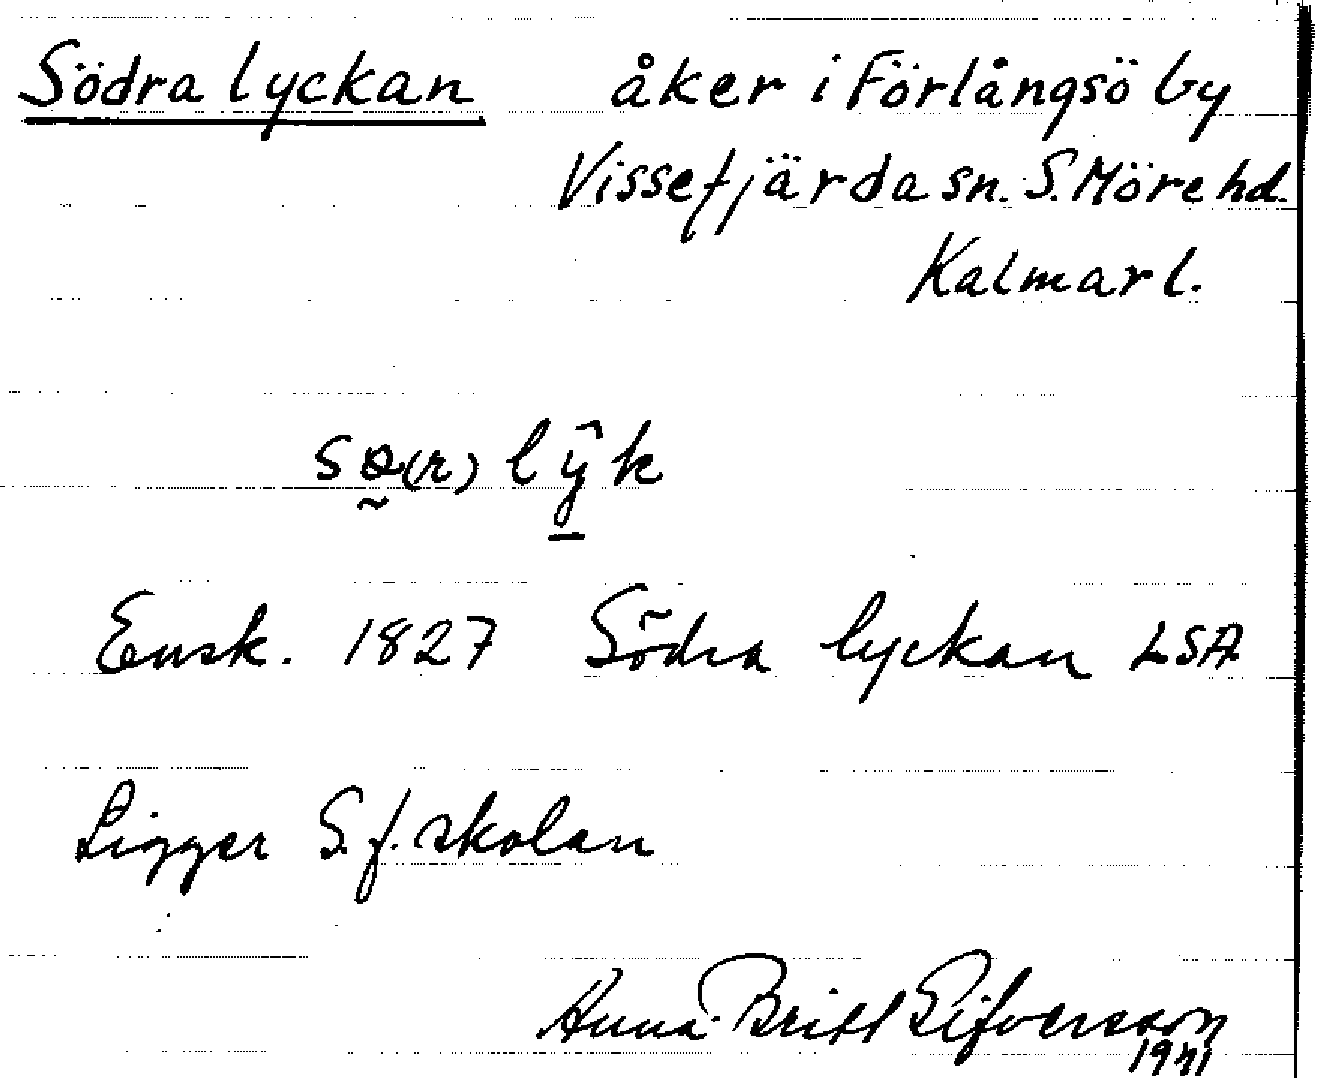 Södra lyckan åker i Förlångsö by
Vissefjärda sn. S. Möre hd.
Kalmar l.
sø(r) lŷk
Ensk. 1827 Södra lyckan LSA
Ligger S. f. skolan
Anna-Britt Sifversson
1971